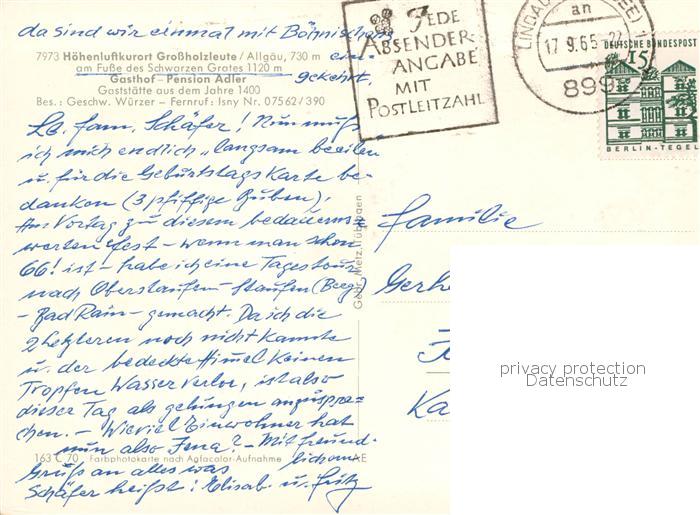 da sind wir einmal mit Böhnischens
7973 Höhenluftkurort Großholzleute / Allgäu, 730 m ein-
am Fuße des Schwarzen Grates 1120 m gekehrt.
Gasthof - Pension Adler
Gaststätte aus dem Jahre 1400
Bes.: Geschw. Würzer - Fernruf: Isny Nr. 07562/390
Lb. Fam. Schäfer! Nun muß
ich mich endlich „langsam beeilen
u. für die Geburtstags Karte be-
danken (3 pfiffige Buben),
Am Vortag zu diesem bedauerns-
werten Fest - wenn man schon
66! ist - habe ich eine Tagestour
nach Oberstaufen - Staufen (Berg)
- Bad Rain - gemacht. Da ich die
2 letzteren noch nicht kannte
u. der bedeckte Himmel keinen
Tropfen Wasser verlor, ist also
dieser Tag als gelungen anzuspre-
chen. - Wieviel Einwohner hat
nun also Jena? - Mit freund-
lichem
163 C 70 Farbphotokarte nach Agfacolor-Aufnahme AE
Gruß an alles was
Schäfer heißt! Elisab. u. Fritz
Gebr. Metz, Tübingen
JEDE
ABSENDER-
ANGABE
MIT
POSTLEITZAHL
LINDAU
an
17.9.65
899
DEUTSCHE BUNDESPOST
15
BERLIN-TEGEL
Familie
Gerh
Ka
privacy protection
Datenschutz